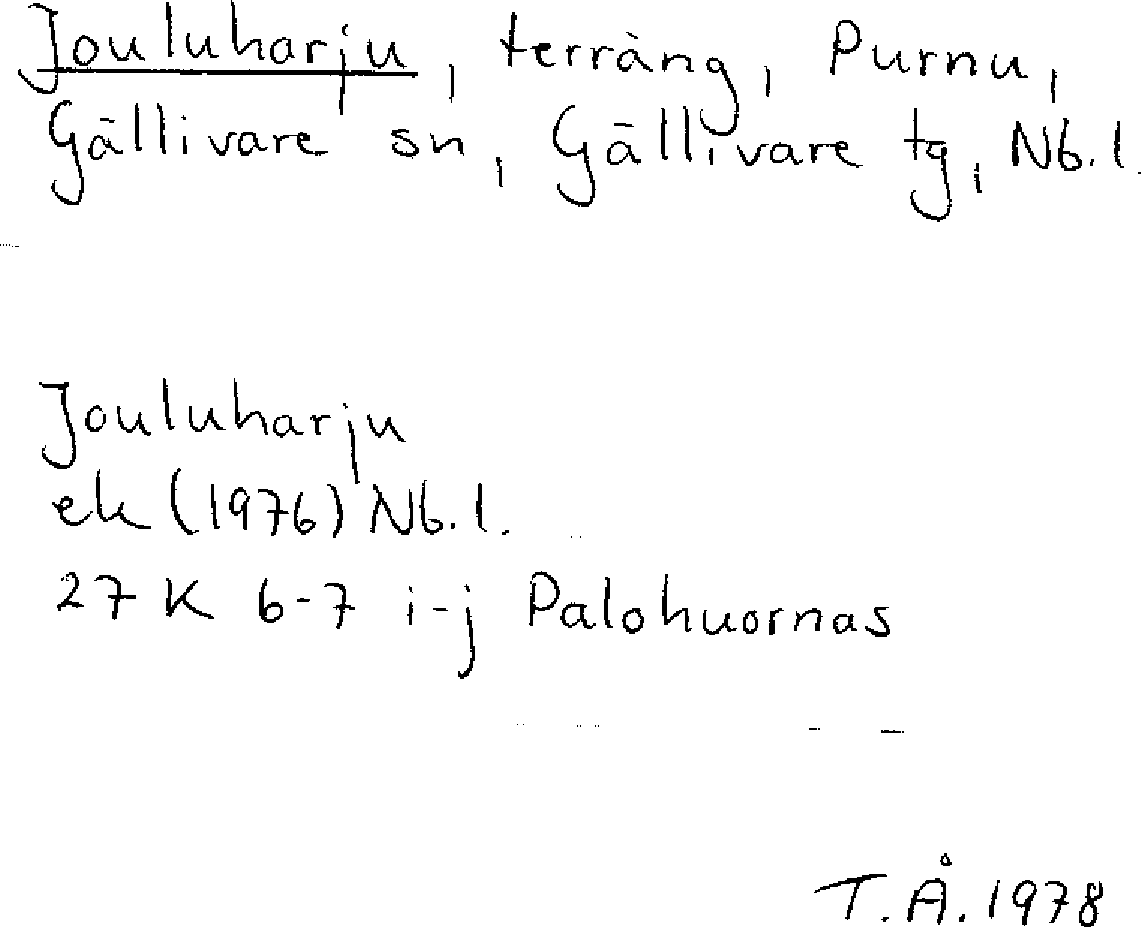 Jouluharju, terräng, Purnu,
Gällivare sn, Gällivare tg, Nb.l.
Jouluharju
ek (1976) Nb.l.
27 K 6-7 i-j Palohuornas
T.Å.1978